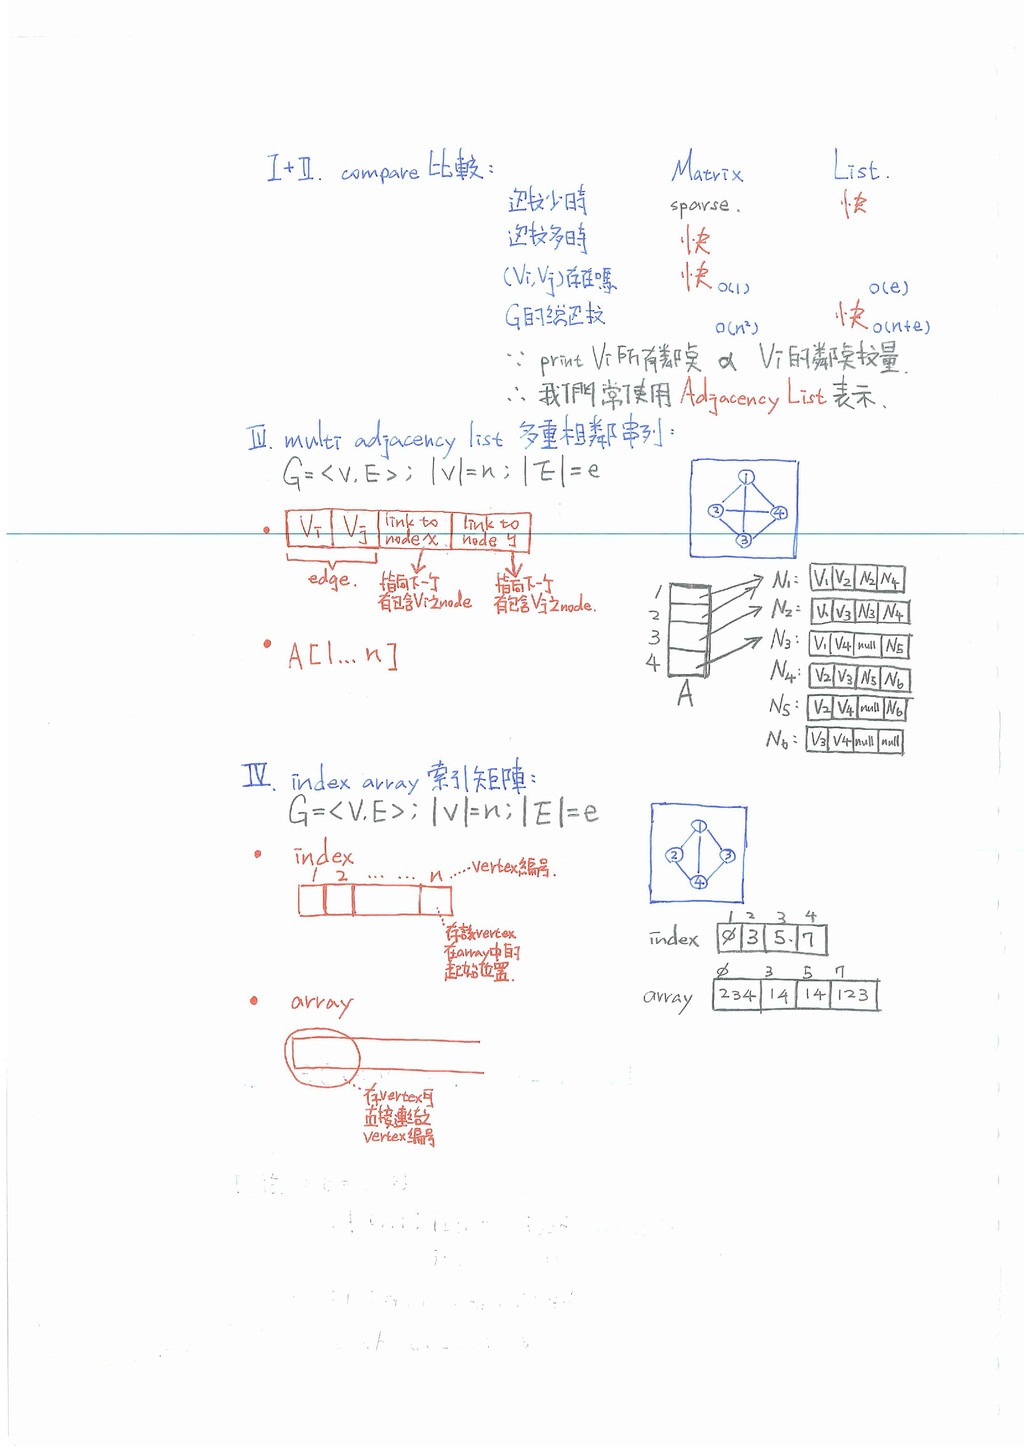 I+II. compare 比較: Matrix List.
邊較少時 sparse. 快
邊較多時 快
(Vi,Vj)存在嗎 快 O(1) O(e)
G的總邊數 O(n²) 快 O(n+e)
∵ print Vi所有鄰点 α Vi的鄰点數量.
∴ 我們常使用 Adjacency List 表示.
III. multi adjacency list 多重相鄰串列:
G=<V.E>; |V|=n; |E|=e
1
2 4
3
• Vi Vj link to node x link to node y
edge. 指向下一个有包含Vi之node 指向下一个有包含Vj之node.
• A[1...n]
1
2
3
4
A
N1: V1 V2 N2 N4
N2: V1 V3 N3 N4
N3: V1 V4 null N5
N4: V2 V3 N5 N6
N5: V2 V4 null N6
N6: V3 V4 null null
IV. index array 索引矩陣:
G=<V.E>; |V|=n; |E|=e
1
2 3
4
• index
1 2 ... ... n ... vertex編号.
存該vertex
在array中的
起始位置.
1 2 3 4
index ø 3 5. 7
ø 3 5 7
array 234 14 14 123
• array
存vertex可
直接連結之
vertex編号